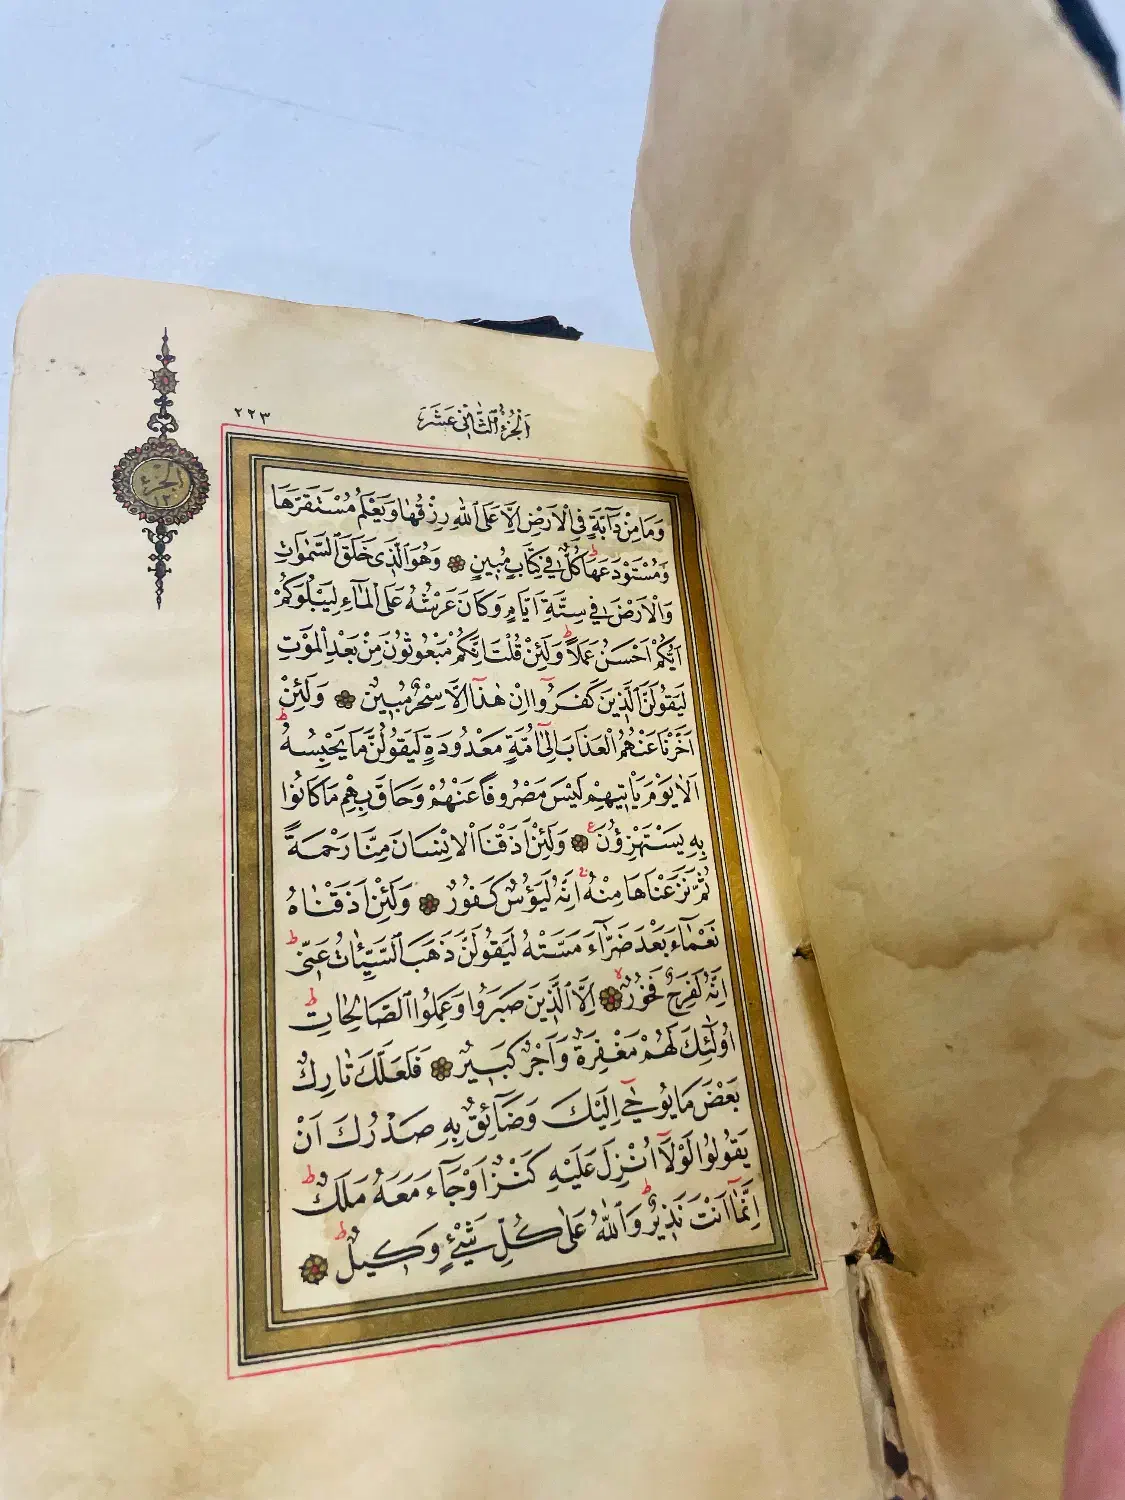 ٢٢٣
اَلْجُزْءُ الثَّانِى عَشَرَ
الجزء
١٢
وَمَا مِنْ دَآبَّةٍ فِى الْاَرْضِ اِلَّا عَلَى اللّٰهِ رِزْقُهَا وَيَعْلَمُ مُسْتَقَرَّهَا
وَمُسْتَوْدَعَهَا كُلٌّ فِى كِتَابٍ مُبِينٍ وَهُوَ الَّذِى خَلَقَ السَّمٰوَاتِ
وَالْاَرْضَ فِى سِتَّةِ اَيَّامٍ وَكَانَ عَرْشُهُ عَلَى الْمَآءِ لِيَبْلُوَكُمْ
اَيُّكُمْ اَحْسَنُ عَمَلًا وَلَئِنْ قُلْتَ اِنَّكُمْ مَبْعُوثُونَ مِنْ بَعْدِ الْمَوْتِ
لَيَقُولَنَّ الَّذِينَ كَفَرُوا اِنْ هٰذَا اِلَّا سِحْرٌ مُبِينٌ وَلَئِنْ
اَخَّرْنَا عَنْهُمُ الْعَذَابَ اِلٰٓى اُمَّةٍ مَعْدُودَةٍ لَيَقُولُنَّ مَا يَحْبِسُهُ
اَلَا يَوْمَ يَاْتِيهِمْ لَيْسَ مَصْرُوفًا عَنْهُمْ وَحَاقَ بِهِمْ مَا كَانُوا
بِهِ يَسْتَهْزِؤُنَ وَلَئِنْ اَذَقْنَا الْاِنْسَانَ مِنَّا رَحْمَةً
ثُمَّ نَزَعْنَاهَا مِنْهُ اِنَّهُ لَيَؤُسٌ كَفُورٌ وَلَئِنْ اَذَقْنَاهُ
نَعْمَآءَ بَعْدَ ضَرَّآءَ مَسَّتْهُ لَيَقُولَنَّ ذَهَبَ السَّيِّئَاتُ عَنِّى
اِنَّهُ لَفَرِحٌ فَخُورٌ اِلَّا الَّذِينَ صَبَرُوا وَعَمِلُوا الصَّالِحَاتِ
اُولٰٓئِكَ لَهُمْ مَغْفِرَةٌ وَاَجْرٌ كَبِيرٌ فَلَعَلَّكَ تَارِكٌ
بَعْضَ مَا يُوحٰٓى اِلَيْكَ وَضَآئِقٌ بِهِ صَدْرُكَ اَنْ
يَقُولُوا لَوْلَآ اُنْزِلَ عَلَيْهِ كَنْزٌ اَوْ جَآءَ مَعَهُ مَلَكٌ
اِنَّمَآ اَنْتَ نَذِيرٌ وَاللّٰهُ عَلٰى كُلِّ شَيْءٍ وَكِيلٌ